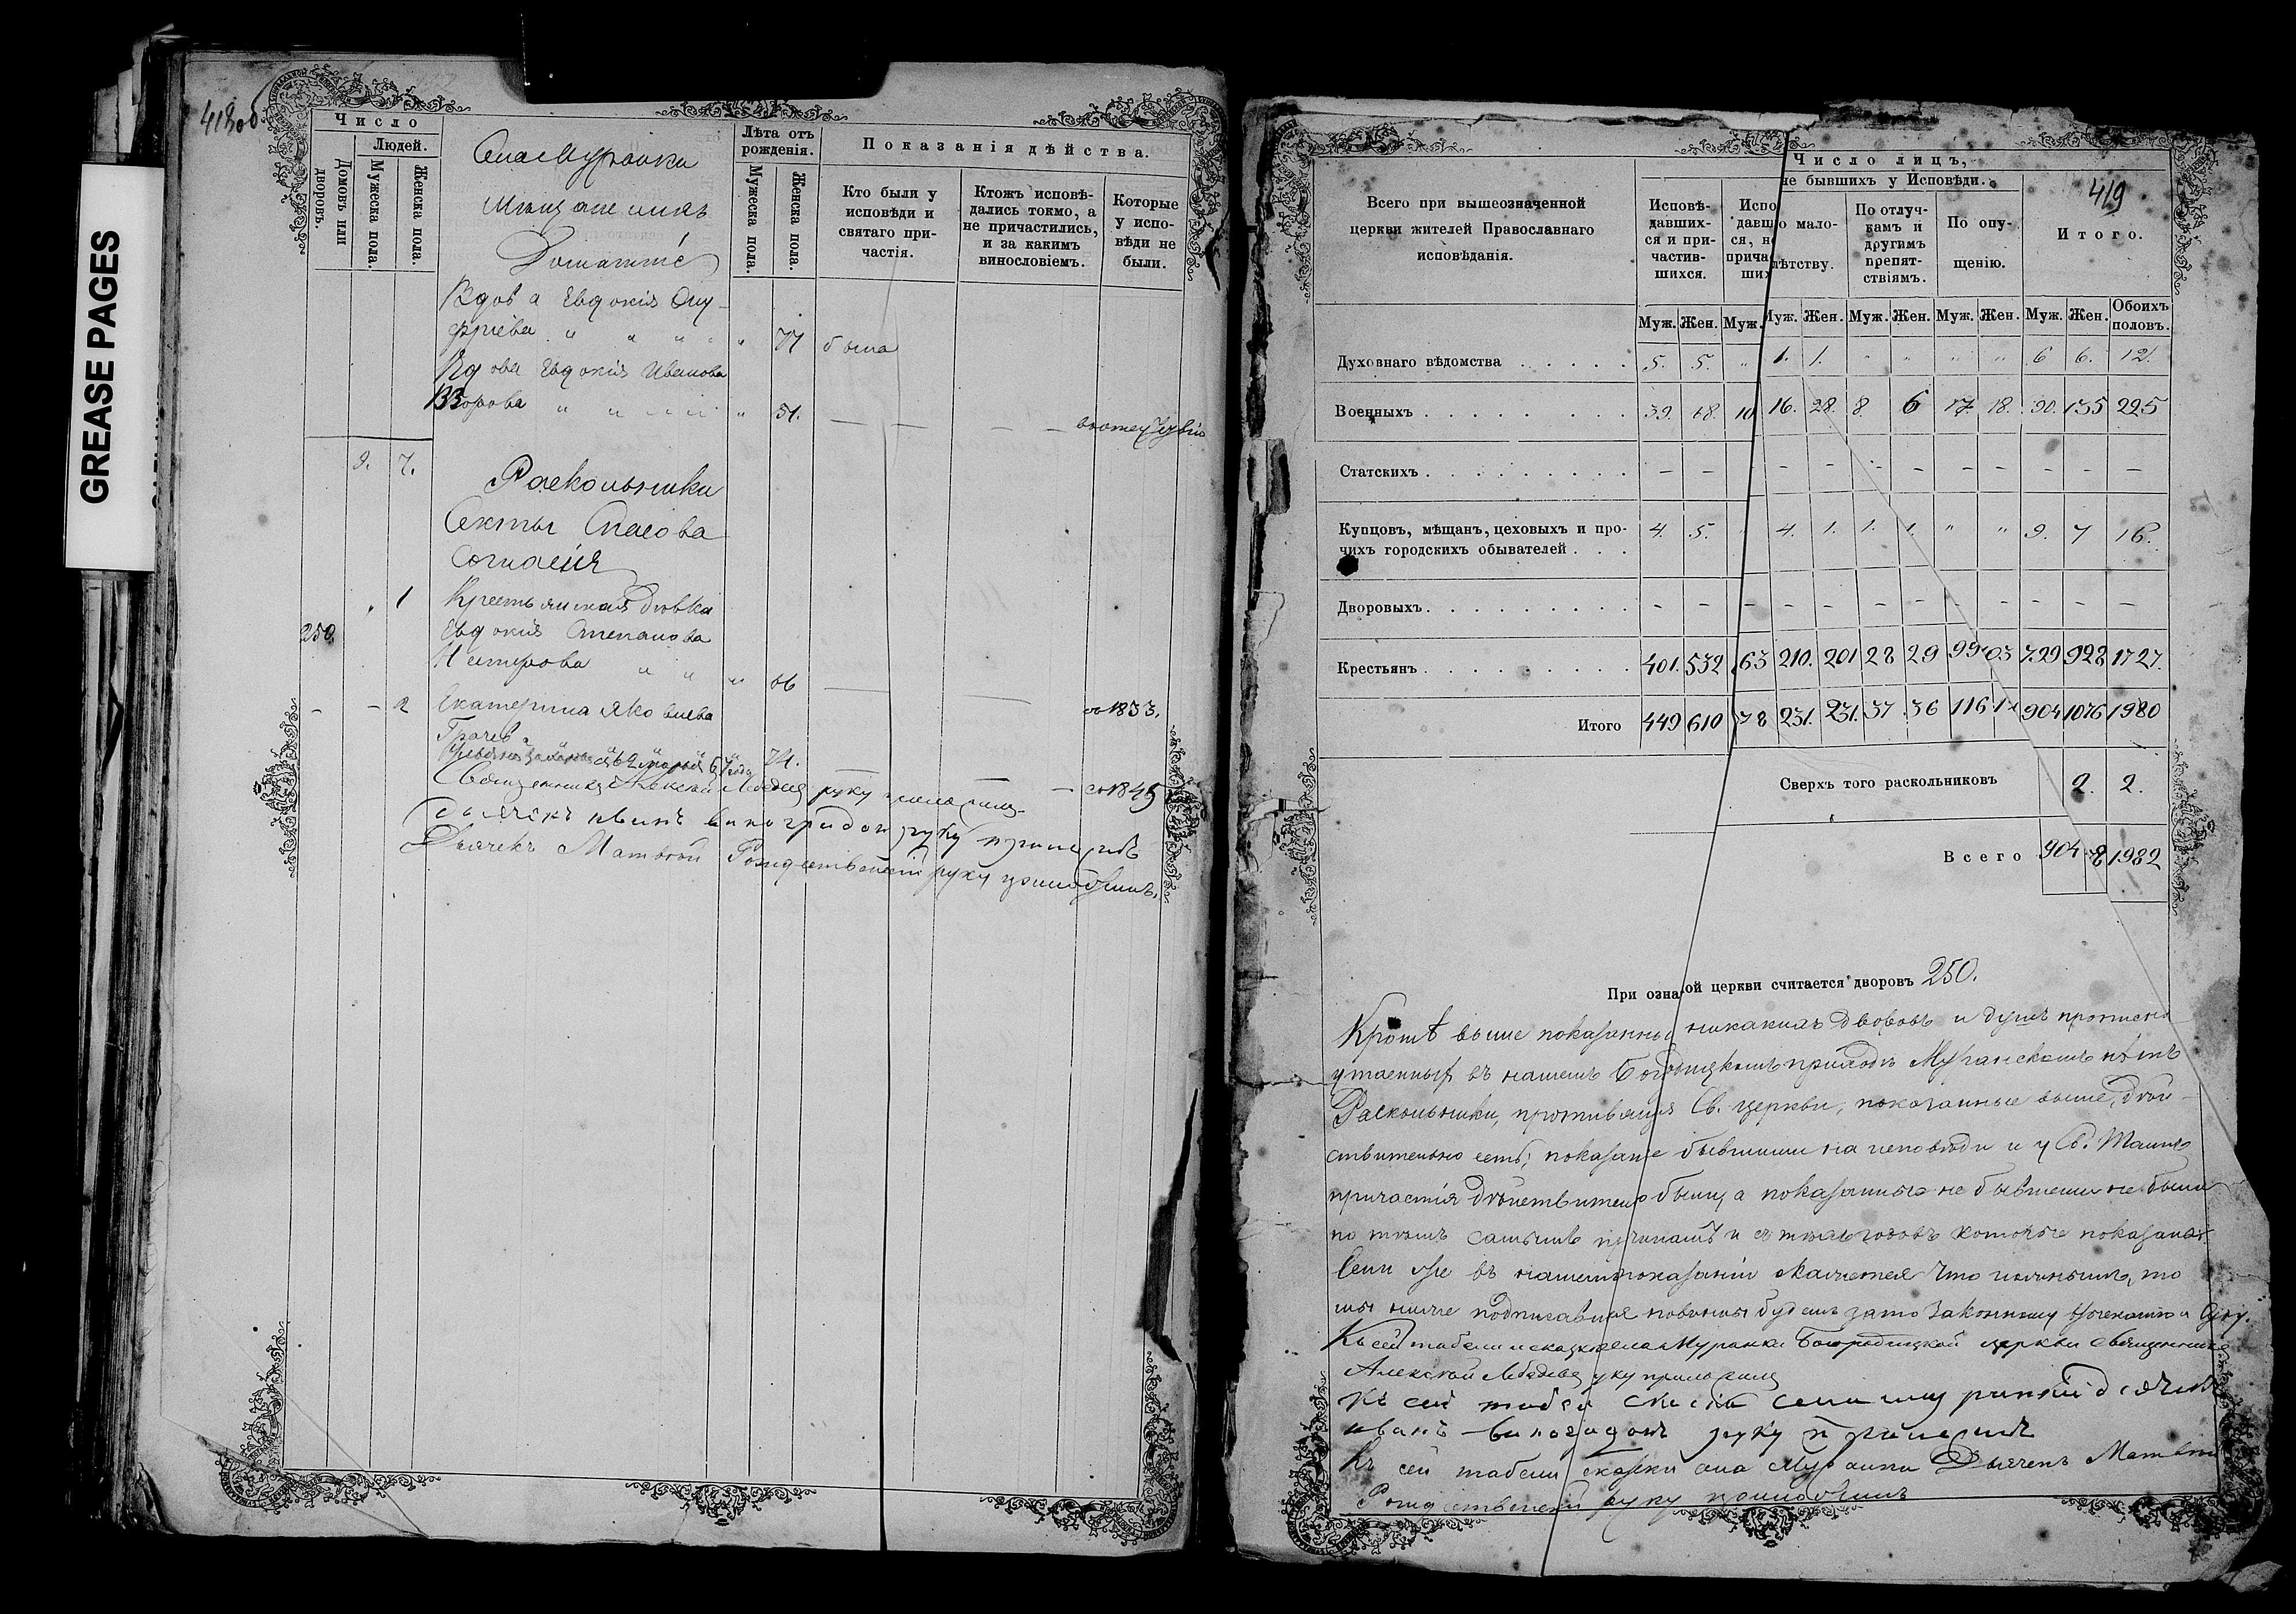 GREASE PAGES
418об
Число
Людей.
Домовъ или дворовъ.
Мужеска пола.
Женска пола.
Лѣта отъ рожденія.
Мужеска пола.
Женска пола.
Показанія дѣйства.
Кто были у исповѣди и святаго причастія.
Ктожъ исповѣдались токмо, а не причастились, и за какимъ винословіемъ.
Которые у исповѣди не были.
Села Муранки
Домашніе
Вдова Евдокія Ону-
фріева " " " " " 77 была
Вдова Евдокія Иванова
" " " " 51. — — — — въ отсутствіи
9. 7.
Раскольники
Секты Спасова
Согласія
" 1 Крестьянская дѣвка
250. Евдокія Степанова
" " " 66 — — со 1833.
- - 2 Екатерина Яковлева
74. — — со 1845
Священникъ Алексѣй Лебедевъ руку приложилъ
Дьячекъ Иванъ Виноградовъ руку приложилъ
Дьячекъ Матвѣй Рождественскій руку приложилъ.
419
Всего при вышеозначенной церкви жителей Православнаго исповѣданія.
Число лицъ,
не бывшихъ у Исповѣди.
Исповѣдавшихся и причастившихся.
По отлучкамъ и другимъ препятствіямъ.
По опущенію.
Итого.
Муж. Жен. Муж. Муж. Жен. Муж. Жен. Муж. Жен. Муж. Жен. Обоихъ половъ.
Духовнаго вѣдомства 5. 5. " 1. 1. " " " " 6 6. 12.
Военныхъ 39. 68. 10 16. 28. 8. 6 17. 18. 90. 135 225
Статскихъ - - - - - - - - - - -
Купцовъ, мѣщанъ, цеховыхъ и прочихъ городскихъ обывателей 4. 5. " 4. 1. 1. 1. " " 9. 7 16.
Дворовыхъ - - - - - - - - - - - -
Крестьянъ 401. 532 63 210. 201 28 29 99 103 799 928 1727.
Итого 449 610 78 231. 231. 37 36 116 904 1076 1980
Сверхъ того раскольниковъ 2. 2.
Всего 904 1982
При озна ой церкви считается дворовъ 250.
Кромѣ выше показанны никакихъ дворовъ и душъ
утаенныхъ въ нашемъ Богородицкомъ приходѣ Муранскомъ нѣтъ
Раскольники, противящіяся Св. церкви, показанные выше, дѣй-
ствительно есть; показаніе бывшими на исповѣди и у Св. Таинъ
причастія дѣйствительно были, а показанные не бывшеми не были
по тѣмъ самымъ причинамъ и съ тѣхъ годовъ которые показаны.
Если же въ нашемъ показаніи окажется что ложнымъ, то
мы ниже подписавшія повинны будемъ за то законному взысканію и суду.
Къ сей табели и сказкѣ села Муранки Богородицкой церкви священникъ
Алексѣй Лебедевъ руку приложилъ
Къ сей табели дьячекъ
Иванъ Виноградовъ руку приложилъ
Къ сей табели сказки села Муранки Дьячекъ Матвѣй
Рождественскій руку приложилъ